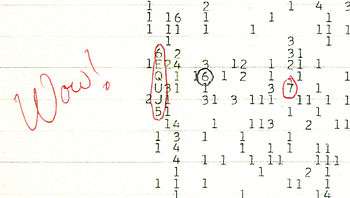 Wow!
1 2 1 4 3
1 16 1 1
1 11 1 11 1 1
1 3
6 2 31
1 E 24 1 21
Q 1 16 1 2 1 1 1 1
U 31 1 3 7 1
2 J 1 31 3 111 11 1 1
5 1
14 1 113 2 11
1 3 1 1 1
1 4 1 1 1 1
1 4 11 111 111
1 2 1
1 1 1 1 11
1 14